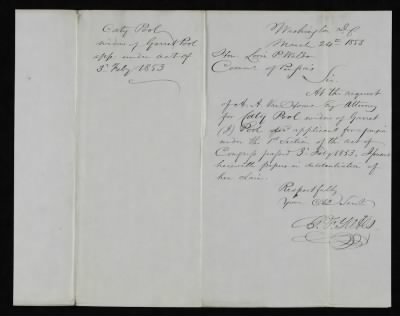 Caty Pool
widow of Garret Pool
app. under act of
3d Feby 1853
Washington D.C.
March 24th 1853
Hon. Loren P. Waldo
Commr of Pensions
Sir.
At the request
of A. A. Van Horne Esq Attorney
for Caty Pool widow of Garret
(J) Pool applicant for pension
under the 1st Section of the act of
Congress passed 3d Feby 1853, I 
herewith papers in substantiation of
her claim.
Respectfully
Your Obt Servt